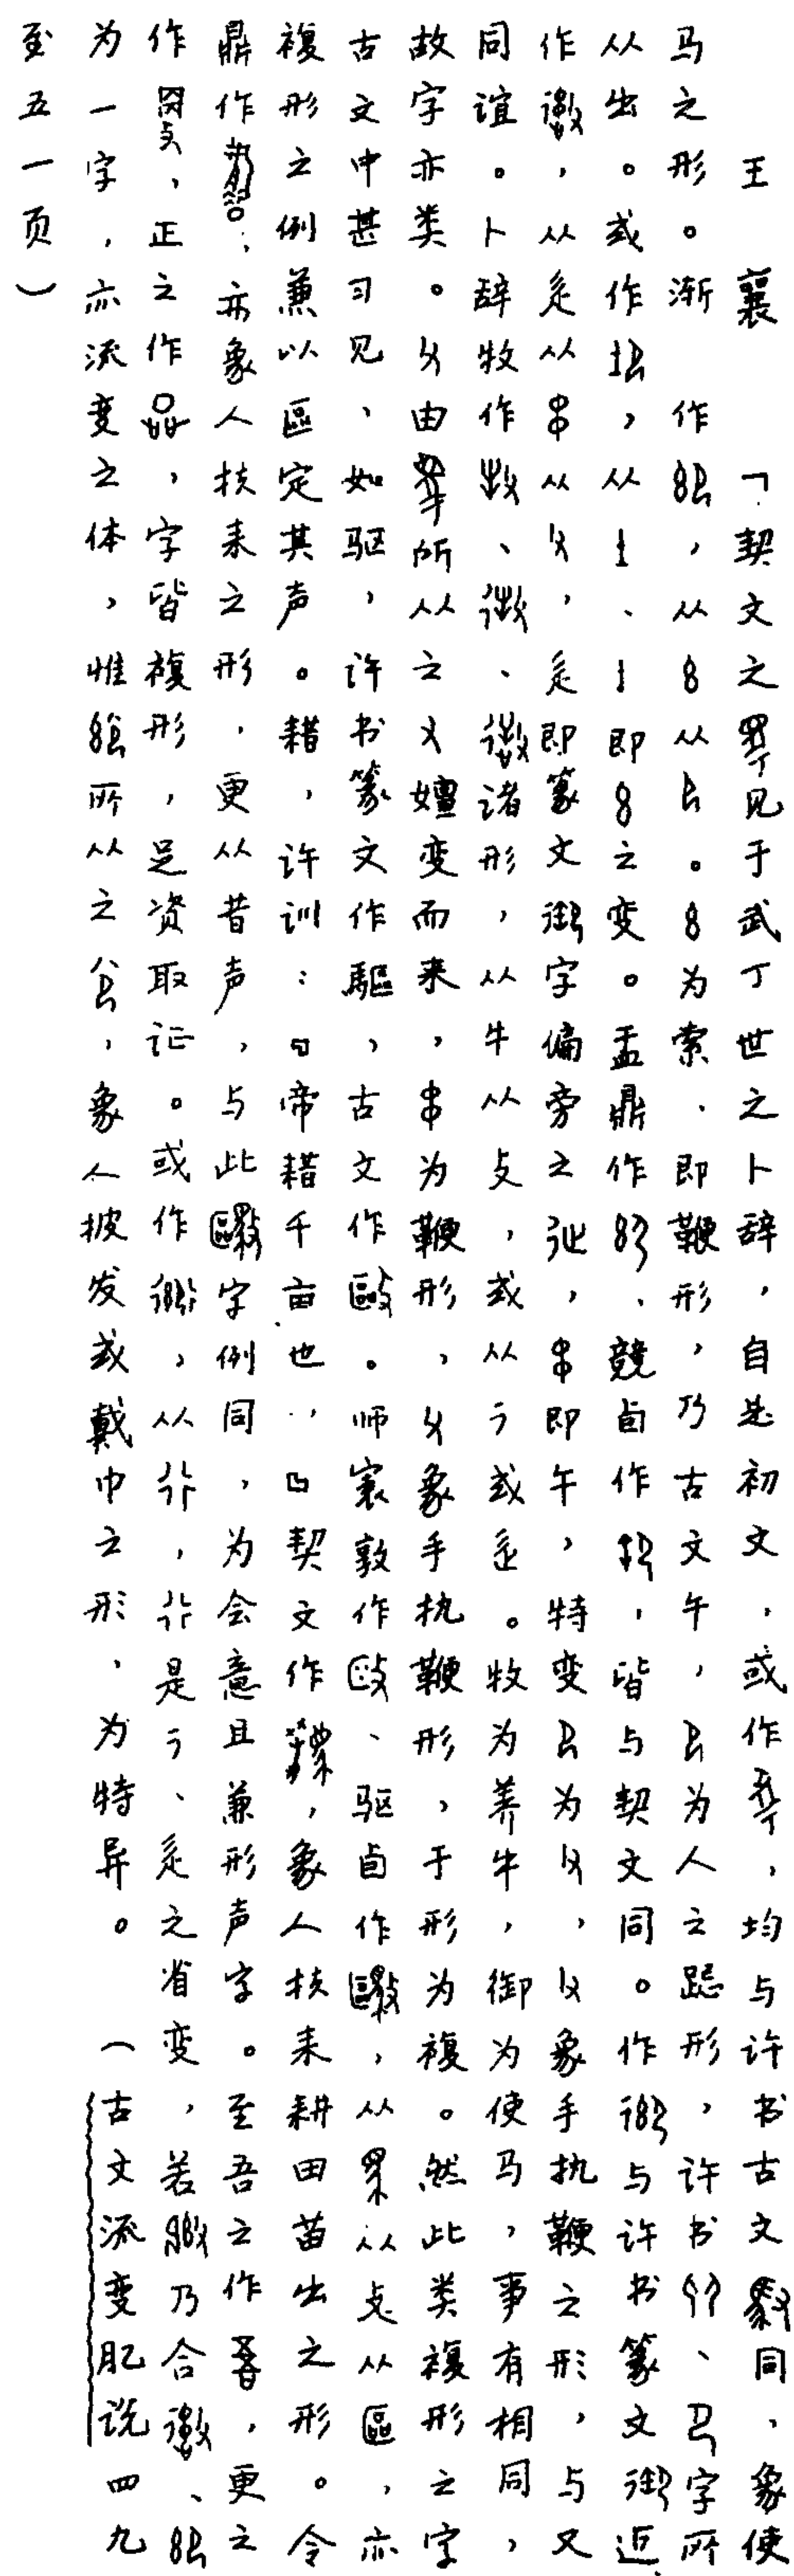 王襄 「契文之见于武丁世之卜辞，自是初文，或作，均与许书古文同，象使
马之形。渐作，从从。为索，即鞭形，乃古文午，为人之跽形，许书、字所
从出。或作，从、即之变。盂鼎作、競卣作，皆与契文同。作与许书篆文御近
作，从辵从从，辵即篆文御字偏旁之，即午，特变为，象手执鞭之形，与又
同谊。卜辞牧作、、诸形，从牛从攴，或从彳或辵。牧为养牛，御为使马，事有相同，
故字亦类。由所从之又嬗变而来，为鞭形，象手执鞭形，于形为複。然此类複形之字
古文中甚习见，如驱，许书篆文作驅，古文作敺。师寰敦作、驱卣作，从从攴从區，亦
複形之例兼以區定其声。耤，许训：『帝耤千亩也，』契文作，象人扶耒耕田苗出之形。令
鼎作，亦象人扶耒之形，更从昔声，与此字例同，为会意且兼形声字。至吾之作，更之
作，正之作，字皆複形，足资取证。或作，从，是彳、辵之省变，若乃合、
为一字，亦流变之体，惟所从之，象人披发或戴巾之形，为特异。（古文流变肊说四九
至五一页）